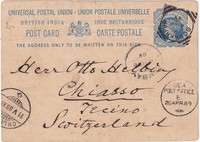 UNIVERSAL POSTAL UNION - UNION POSTALE UNIVERSELLE
BRITISH INDIA INDE BRITANNIQUE
POST CARD CARTE POSTALE
THE ADDRESS ONLY TO BE WRITTEN ON THIS SIDE
Herr Otto Helbling
Chiasso
Tecino
Switzerland
SEA
POST OFFICE
26 APR. 89